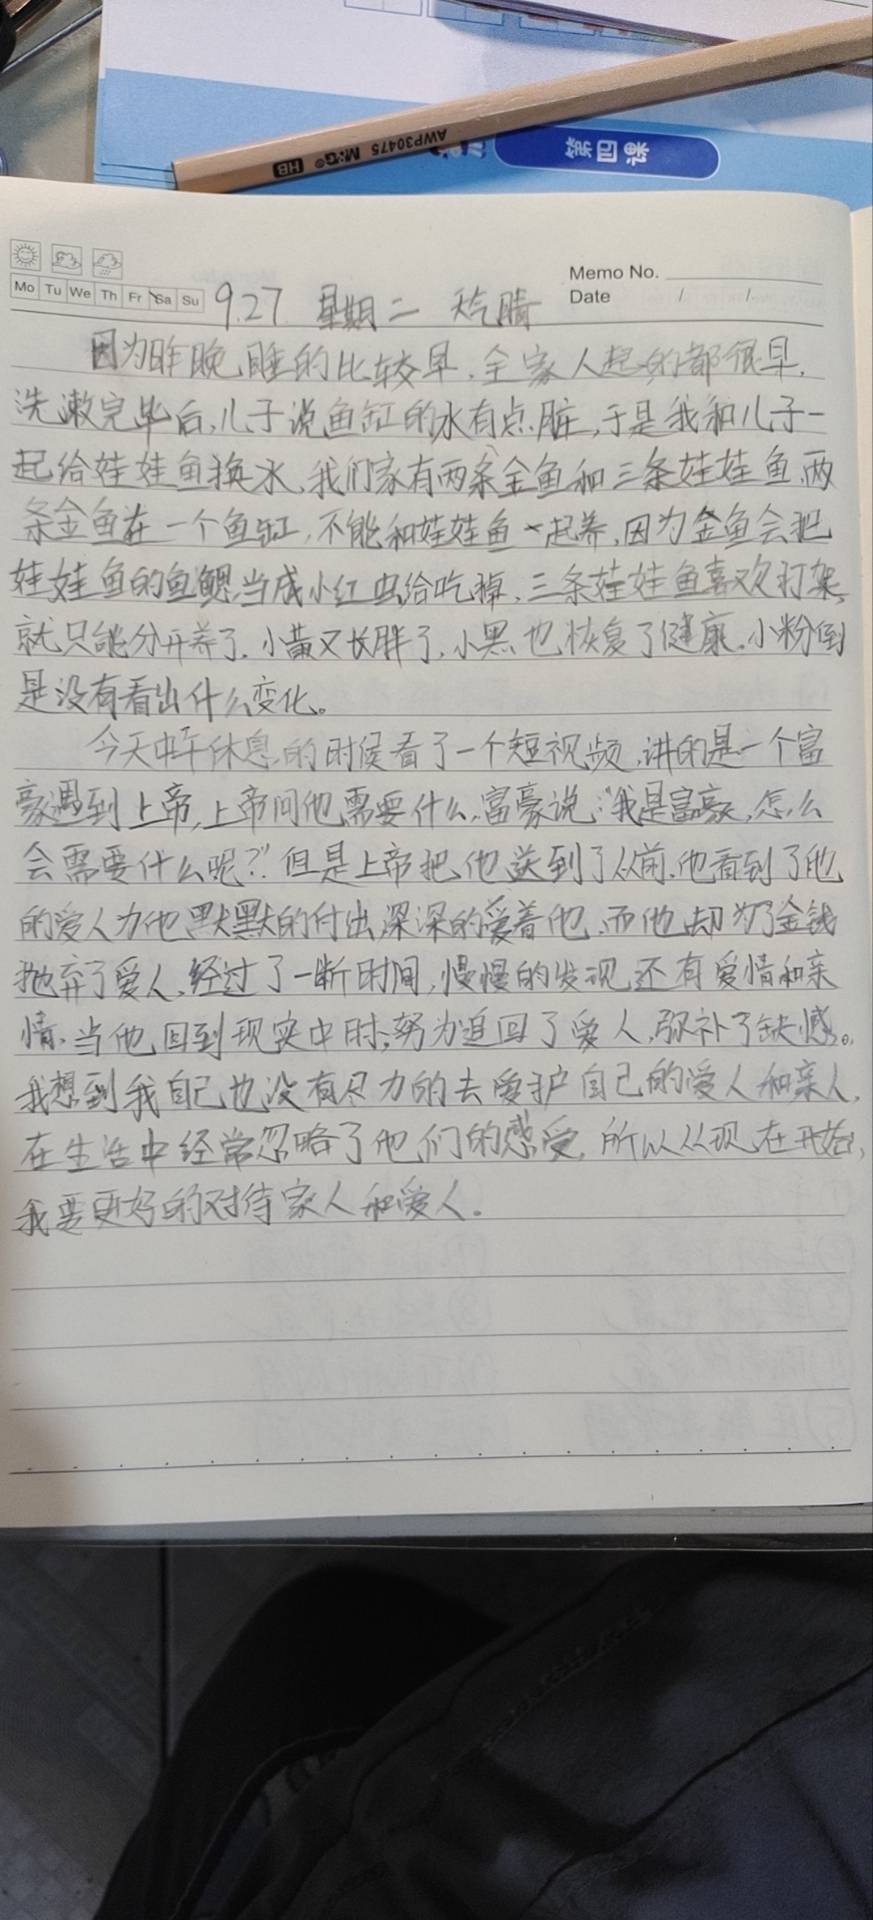 第四课
AWP30475 M&G® HB
Mo Tu We Th Fr Sa Su
Memo No.
Date / /
9.27 星期二 天气晴
因为昨晚睡的比较早,全家人起的都很早,
洗漱完毕后,儿子说鱼缸的水有点脏,于是我和儿子一
起给娃娃鱼换水,我们家有两条金鱼和三条娃娃鱼,两
条金鱼在一个鱼缸,不能和娃娃鱼一起养,因为金鱼会把
娃娃鱼的鱼鳃当成小红虫给吃掉,三条娃娃鱼喜欢打架,
就只能分开养了,小黄又长胖了,小黑也恢复了健康。小粉倒
是没有看出什么变化。
今天中午休息的时候看了一个短视频,讲的是一个富
豪遇到上帝,上帝问他需要什么,富豪说:“我是富豪,怎么
会需要什么呢?”但是上帝把他送到了从前,他看到了他
的爱人为他默默的付出,深深的爱着他,而他却为了金钱
抛弃了爱人,经过了一断时间,慢慢的发现还有爱情和亲
情,当他回到现实中时,努力追回了爱人,弥补了缺憾。
我想到我自己也没有尽力的去爱护自己的爱人和亲人,
在生活中经常忽略了他们的感受,所以从现在开始,
我要更好的对待家人和爱人。